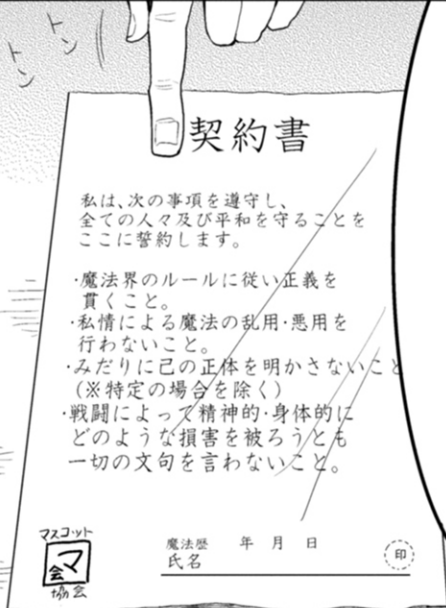 トントン
契約書
私は、次の事項を遵守し、
全ての人々及び平和を守ることを
ここに誓約します。
·魔法界のルールに従い正義を
貫くこと。
·私情による魔法の乱用·悪用を
行わないこと。
·みだりに己の正体を明かさないこと
(※特定の場合を除く)
·戦闘によって精神的·身体的に
どのような損害を被ろうとも
一切の文句を言わないこと。
マスコット
マ会
協会
魔法歴 年 月 日
氏名
印